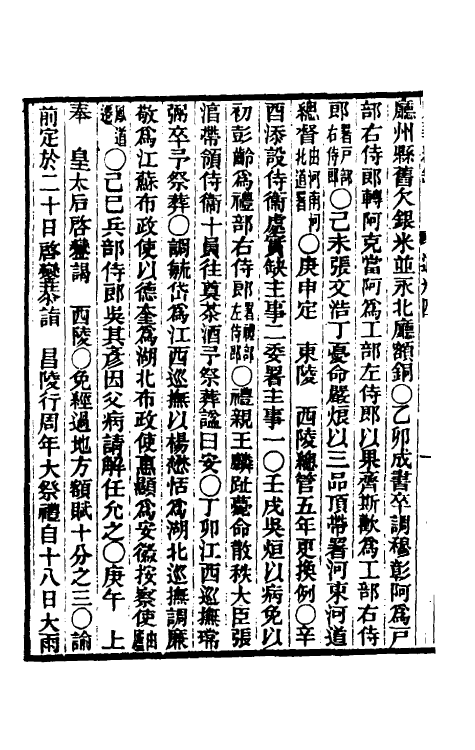 廳州縣舊欠銀米並永北廳額銅○乙卯成書卒調穆彰阿爲戸
部右侍郎轉阿克當阿爲工部左侍郎以果齊斯歡爲工部右侍
郎署戸部右侍郎○己未張文浩丁憂命嚴烺以三品頂帶署河東河道
總督由河南河北道署○庚申定　東陵　西陵總管五年更換例○辛
酉添設侍衞處實缺主事二委署主事一○壬戌吳烜以病免以
初彭齡爲禮部右侍郎署禮部左侍郎○禮親王麟趾薨命散秩大臣張
湻帶領侍衞十員往奠茶酒予祭葬諡曰安○丁卯江西巡撫瑺
弼卒予祭葬○調毓岱爲江西巡撫以楊懋恬爲湖北巡撫調廉
敬爲江蘇布政使以德奎爲湖北布政使惠顯爲安徽按察使由廬
鳳道遷○己巳兵部侍郎吳其彥因父病請解任允之○庚午　上
奉　皇太后啓鑾謁　西陵○免經過地方額賦十分之三○諭
前定於二十日啓鑾恭詣　昌陵行周年大祭禮自十八日大雨